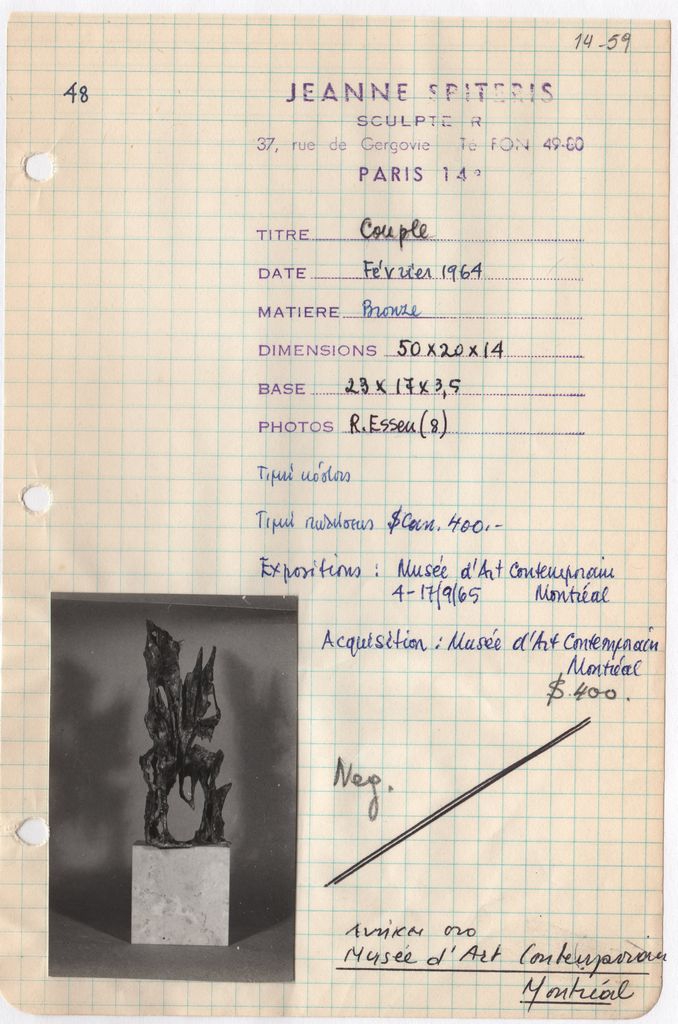 14-59
48
JEANNE SPITERIS
SCULPTE R
37, rue de Gergovie Te FON 49-60
PARIS 14e
TITRE Couple
DATE Février 1964
MATIERE Bronze
DIMENSIONS 50x20x14
BASE 23x17x3,5
PHOTOS R.Essen(8)
Τιμή κόστους
Τιμή πωλήσεως $Can. 400.-
Expositions : Musée d'Art Contemporain
4-17/9/65 Montréal
Acquisition : Musée d'Art Contemporain
Montréal
$.400.
Neg.
ανήκει στο
Musée d'Art Contemporain
Montréal